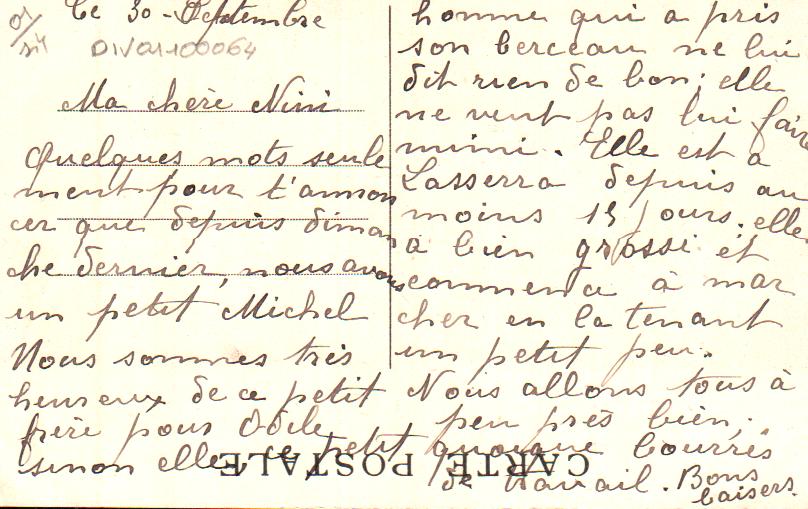 Le 30 - Septembre
DIV01100064
Ma chère Nini
Quelques mots seule
ment pour t'annon
cer que depuis diman
che dernier, nous avons
un petit Michel
Nous sommes très
heureux de ce petit
frère pour Odile
sinon elle, ce petit
homme qui a pris
son berceau ne lui
dit rien de bon; elle
ne veut pas lui faire
mimi. Elle est à
Lasserra depuis au
moins 15 jours. elle
a bien grossi et
commence à mar
cher en la tenant
un petit peu.
Nous allons tous à
peu près bien,
quoique bourrés
de travail. Bons
baisers.
CARTE POSTALE